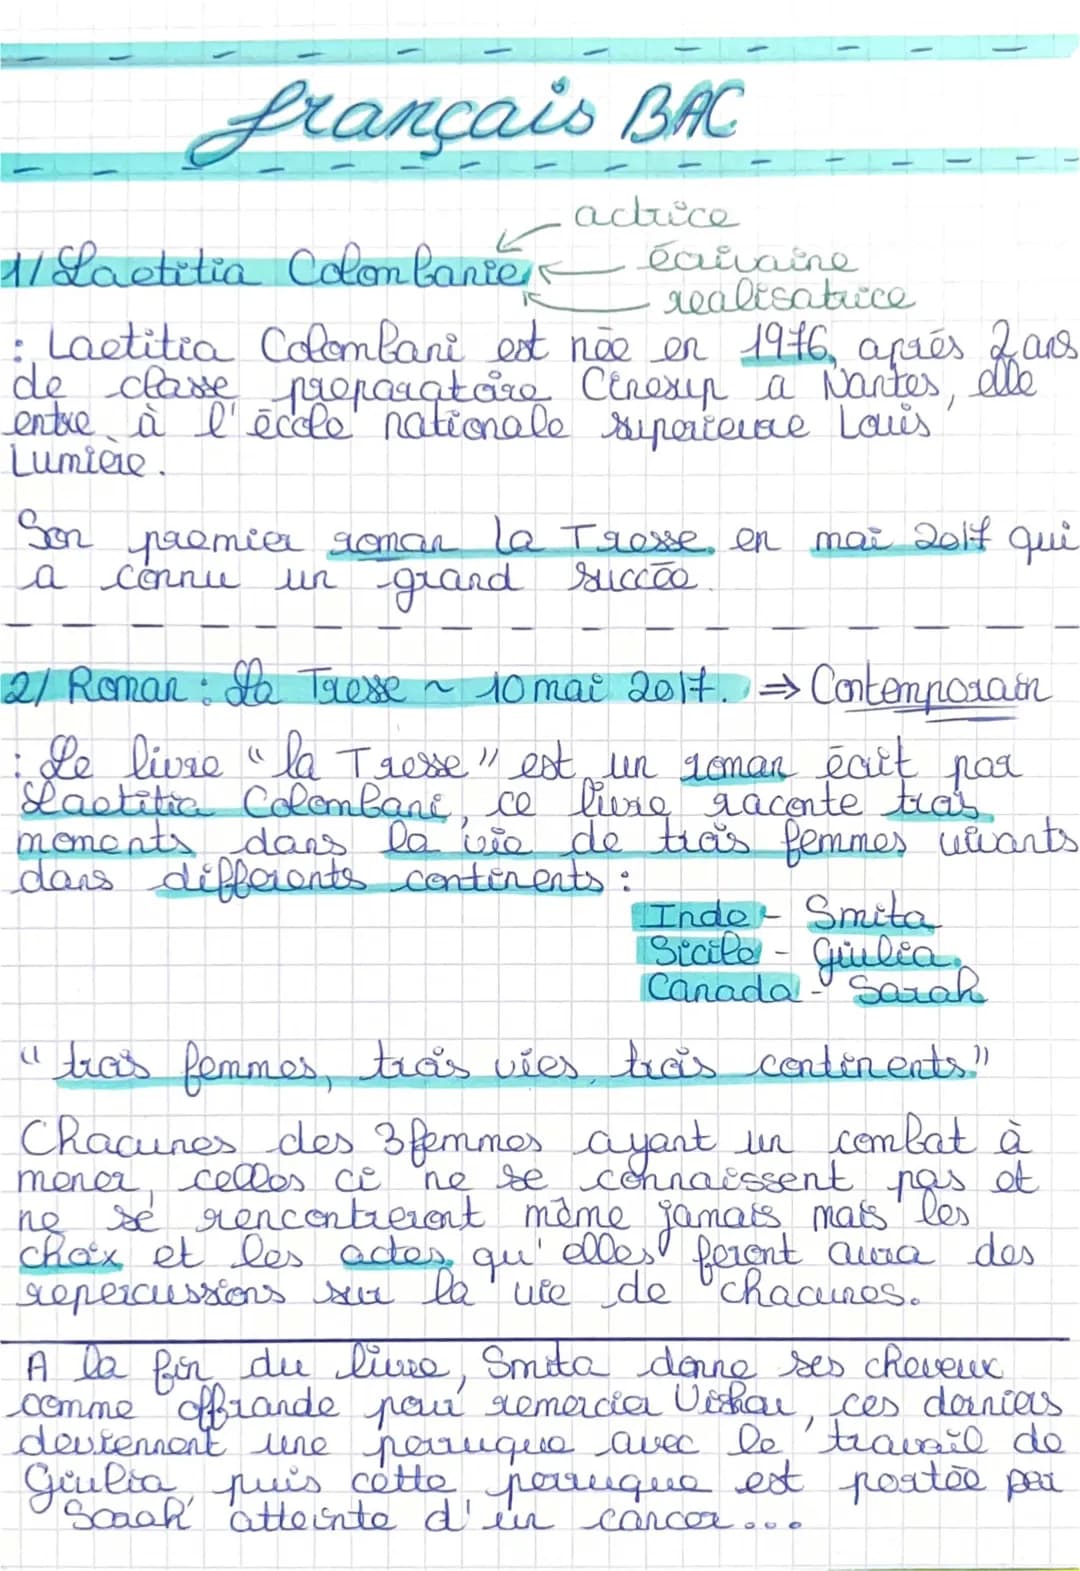 français BAC
actrice
1/ Laetitia Colombanie
écrivaine
realisatrice
: Laetitia Colombani est née en 1976, aprés 2 ans
de classe preparatoire Cinesup a Nantes, elle
entre à l'école nationale superieure Louis
Lumière.
Son premier roman La Tresse, en mai 2017 qui
a connu un grand succée.
2/ Roman : La Tresse ~ 10 mai 2017. ⇒ Contemporain
: Le livre "la Tresse" est un roman écrit par
Laetitia Colombani, ce livre raconte trois
moments dans la vie de trois femmes vivants
dans differents continents :
Inde - Smita
Sicile - Giulia.
Canada - Sarah
"trois femmes, trois vies, trois continents."
Chacunes des 3 femmes ayant un combat à
mener, celles ci ne se connaissent pas et
ne se rencontreront même jamais mais les
choix et les actes qu'elles feront aura des
repercussions sur la vie de chacunes.
A la fin du livre, Smita donne ses cheveux
comme offrande pour remercier Vishou, ces derniers
deviennent une perruque avec le travail de
Giulia, puis cette perruque est portée par
Sarah atteinte d'un cancer...